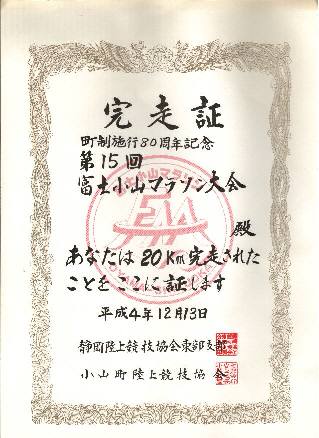 完走証
町制施行80周年記念
第15回
富士小山マラソン大会
殿
あなたは20Km完走された
ことをここに証します
平成4年12月13日
静岡陸上競技協会東部支部
小山町陸上競技協会